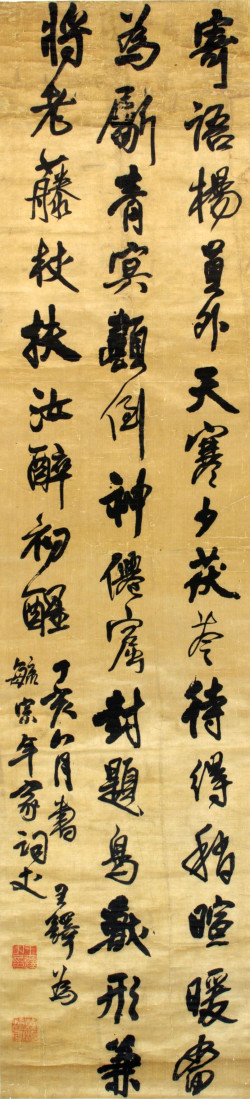 寄語楊員外天寒少茯苓待得稍暄暖當
為劚青冥顛倒神僊窟封題鳥獸形兼
將老藤杖扶汝醉初醒
丁亥八月書 王鐸為
毓宗年家詞丈